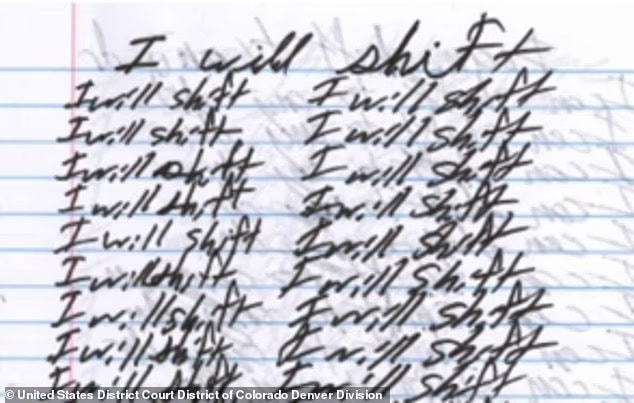 I will shift
I will shift I will shift
I will shift I will shift
I will shift I will shift
I will shift I will shift
I will shift I will shift
I will shift I will shift
I will shift I will shift
I will shift I will shift
I will shift I will shift
© United States District Court District of Colorado Denver Division